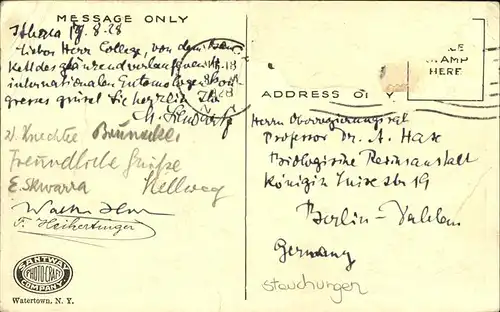 MESSAGE ONLY
Ithaca 17.8.28
Lieber Herr College, von dem Ban-
kett des glänzend verlaufenen
internationalen Entomologen Kon-
gresses grüsst Sie herzlich Ihr
Freundliche Grüsse
E. Skwarra Hellweg
Walther Horn
F. Heikertinger
SANTWAY
PHOTO-CRAFT
COMPANY
Watertown, N. Y.
STAMP
HERE
ADDRESS ONLY
Herrn Oberregierungsrat
Professor Dr. A. Hase
Biologische Reichsanstalt
Königin Luise Str 19
Berlin-Dahlem
Germany
stauchungen